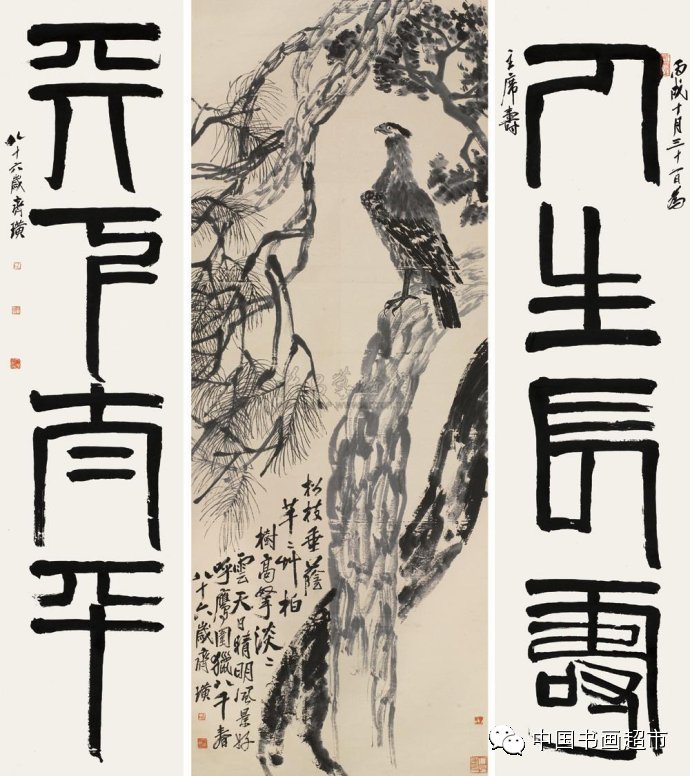 丙戌十月三十一日為
人生長壽
主席壽
松枝垂蔭
芊〻艸柏
樹高擎淡〻
雲天日晴明風景好
呼鷹圍獵八千春
八十六歲齊璜
天下太平
八十六歲齊璜
中国书画超市